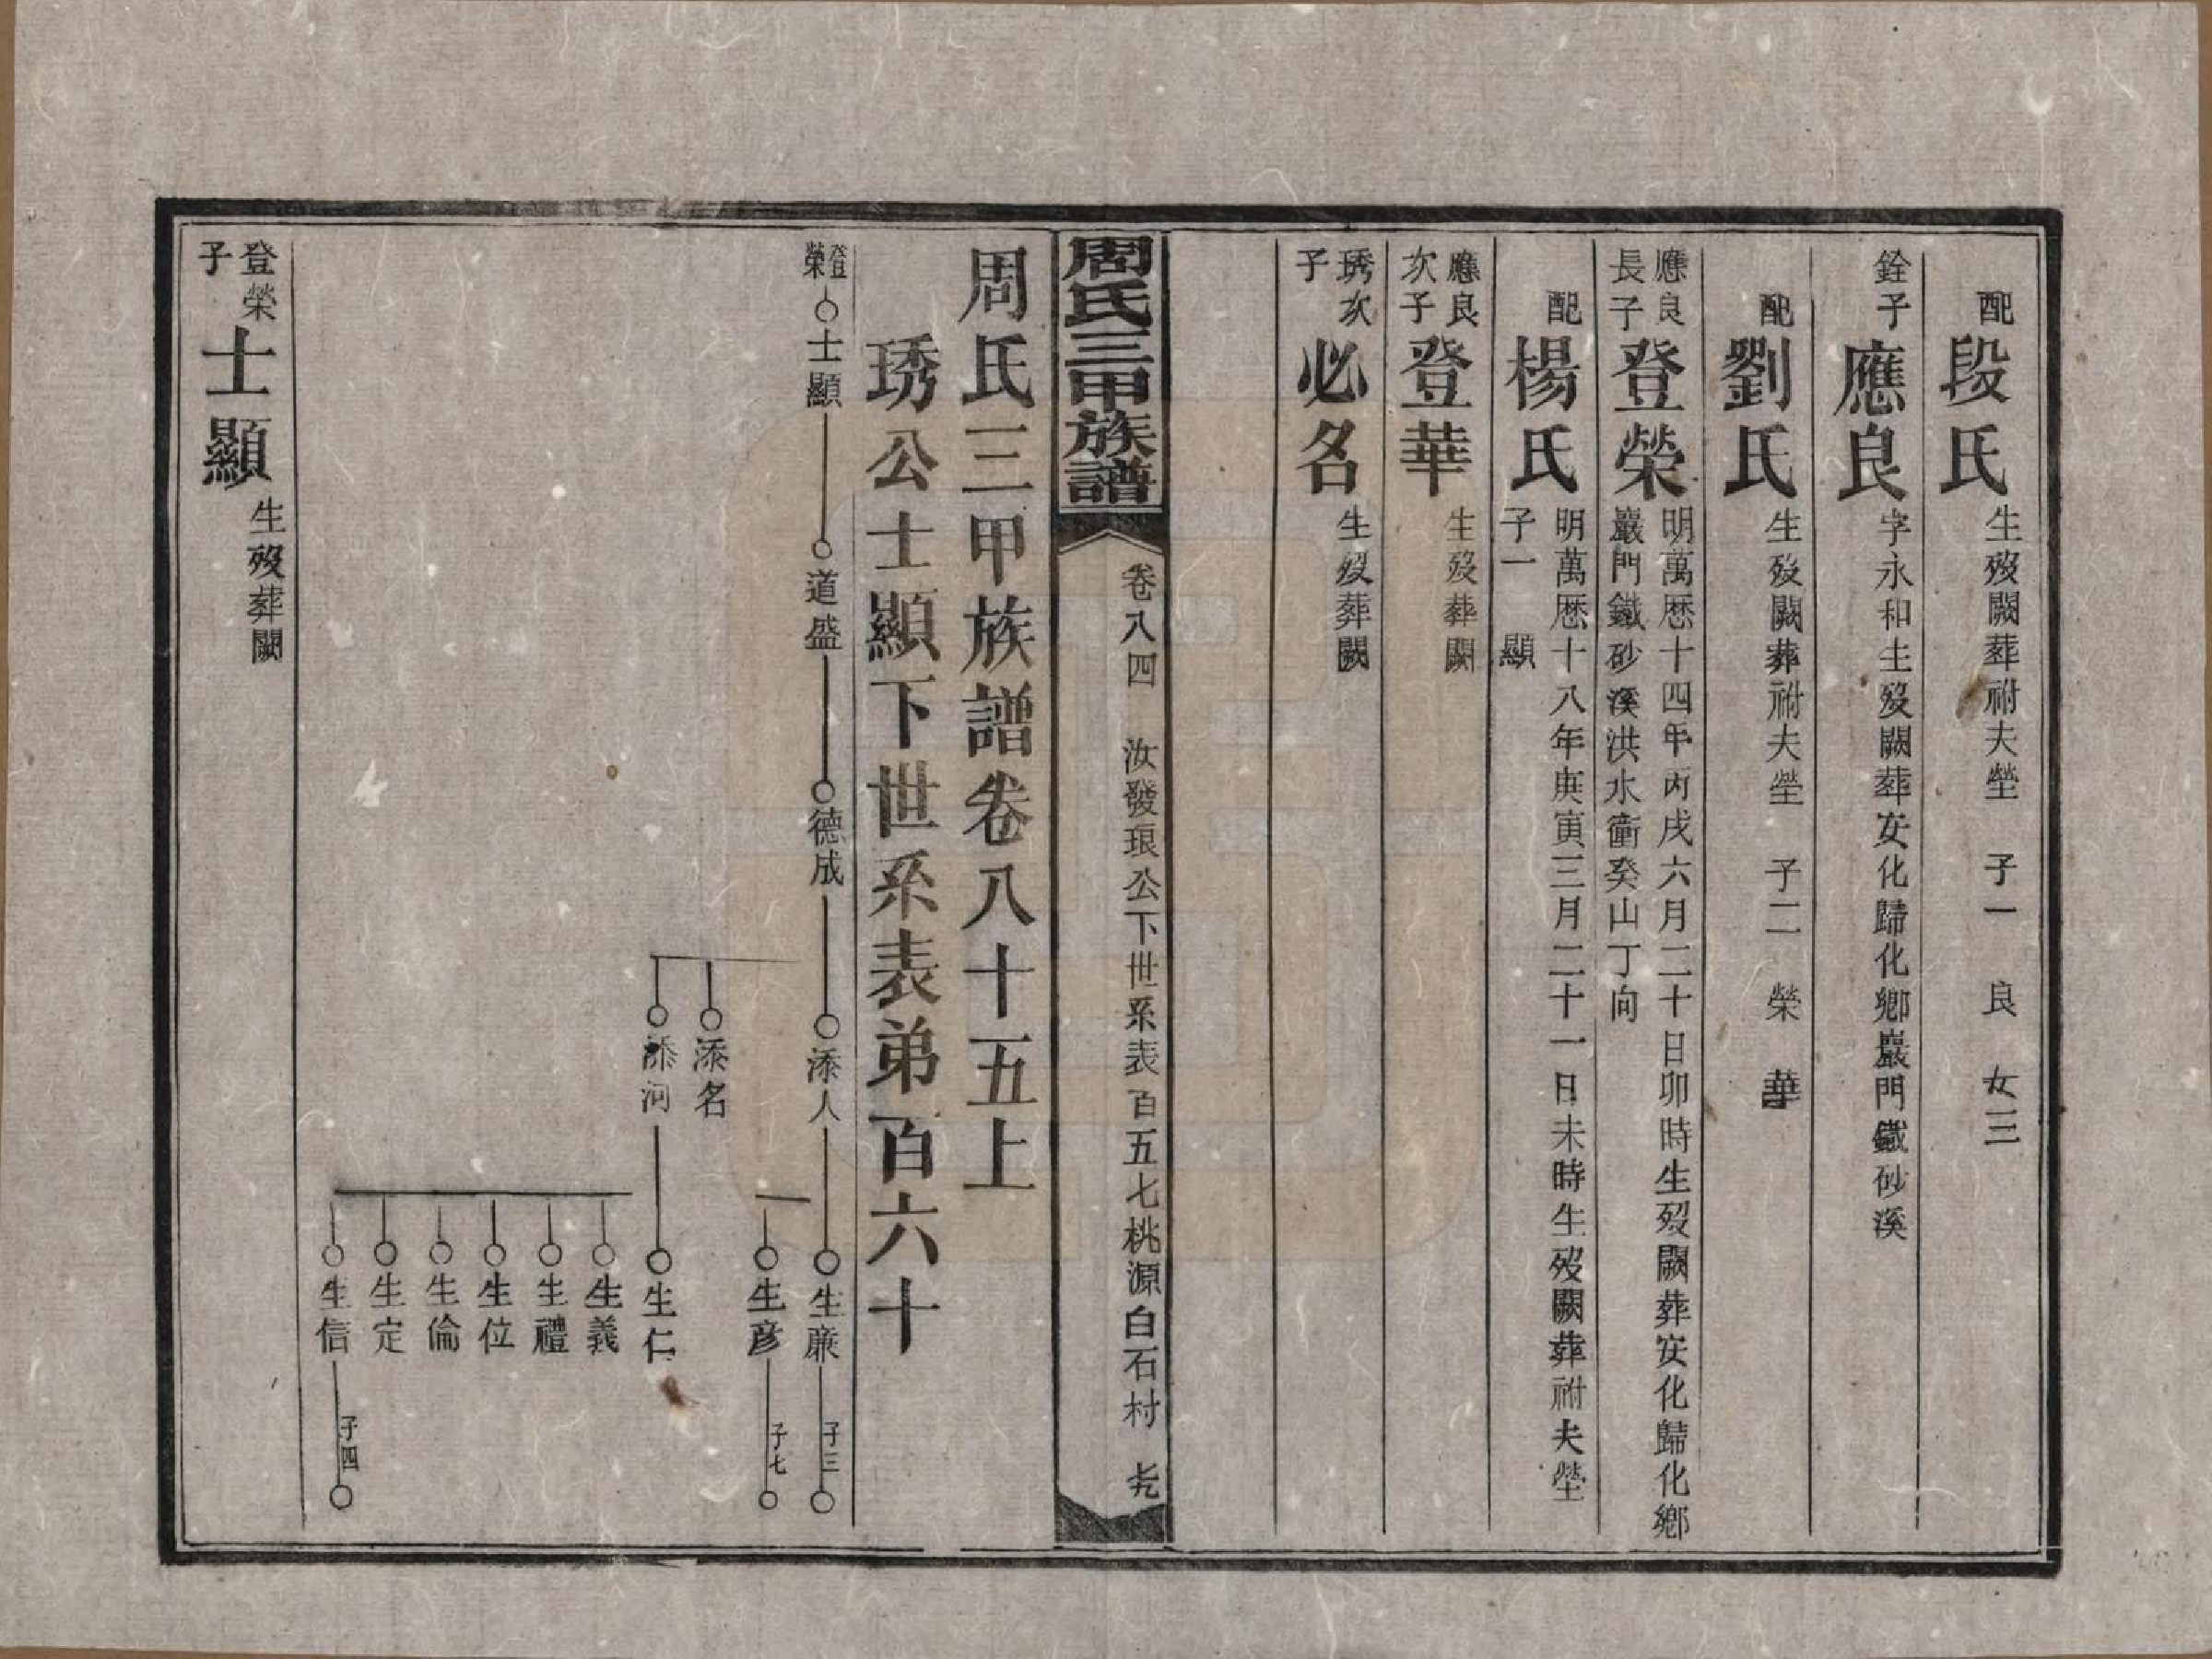 配段氏生歿闕葬祔夫塋　子一　良　女三
銓子應良字永和生歿闕葬安化歸化鄉巖門鐵砂溪
配劉氏生歿闕葬祔夫塋　子二　榮　華
應良長子登榮明萬歷十四年丙戌六月二十日卯時生歿闕葬安化歸化鄉
巖門鐵砂溪洪水衝癸山丁向
配楊氏明萬歷十八年庚寅三月二十一日未時生歿闕葬祔夫塋
子一　顯
應良次子登華生歿葬闕
琇次子必名生歿葬闕
周氏三甲族譜　卷八四　汝發琅公下世系表百五七桃源白石村　芫
周氏三甲族譜卷八十五上
琇公士顯下世系表弟百六十
登榮　士顯　道盛　德成　添人　生廉　子三
生彦　子七
添名
添河　生仁
生義
生禮
生位
生倫
生定
生信　子四
登榮子士顯生歿葬闕